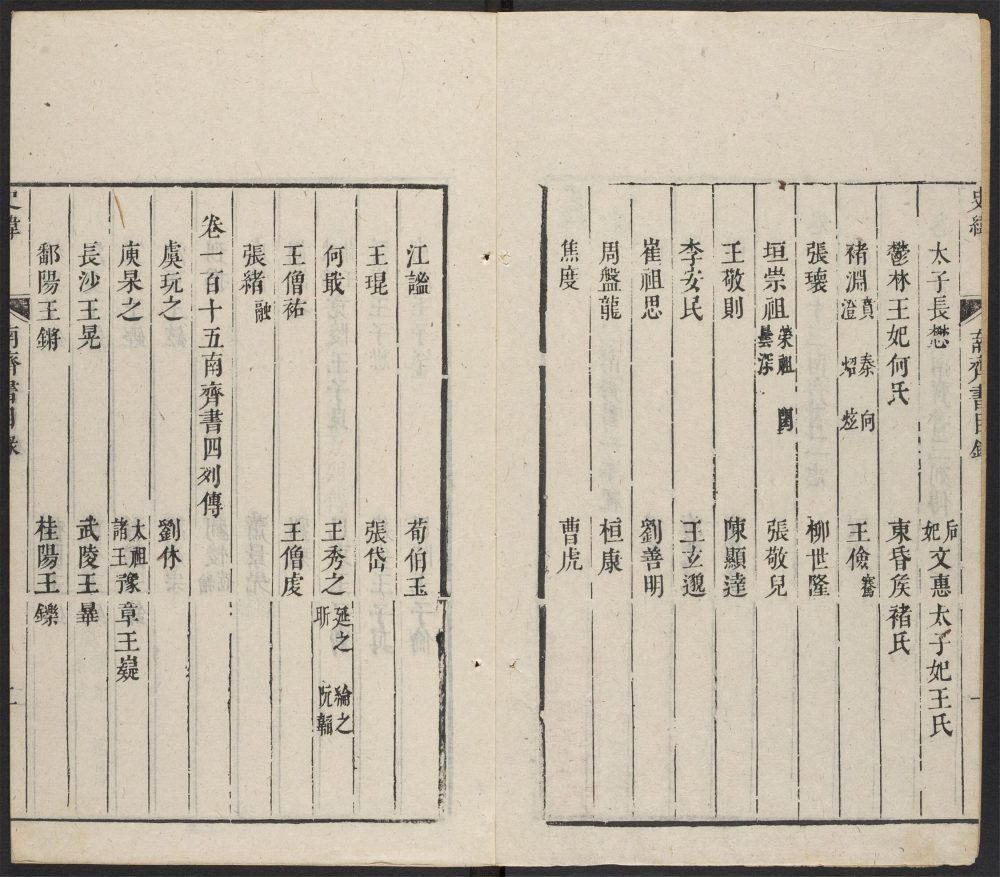 史緯 南齊書目錄 一
太子長懋 后妃文惠太子妃王氏
鬱林王妃何氏 東昏侯褚氏
褚淵 賁 蓁 向 澄 炤 炫 王儉 騫
張瓌 柳世隆
垣崇祖 榮祖 閎 曇深 張敬兒
王敬則 陳顯達
李安民 王玄邈
崔祖思 劉善明
周盤龍 桓康
焦度 曹虎
江謐 荀伯玉
王琨 張岱
何戢 王秀之 延之 綸之 昕 阮韜
王僧祐 王僧虔
張緒 融
卷一百十五南齊書四列傳
虞玩之 劉休
庾杲之 太祖諸王豫章王嶷
長沙王晃 武陵王曅
鄱陽王鏘 桂陽王鑠
史緯 南齊書目錄